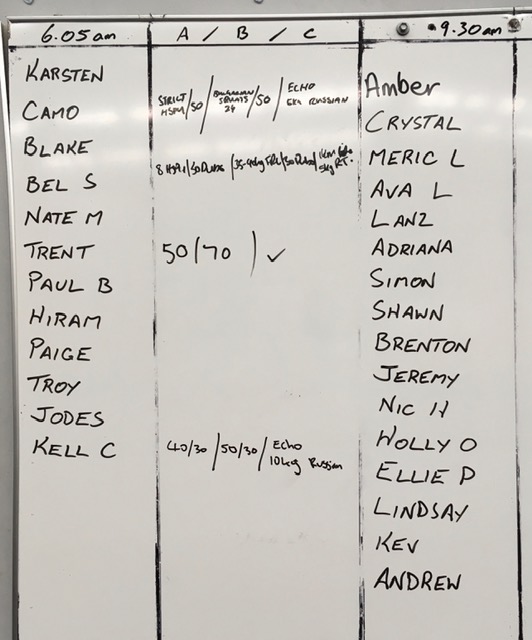 6.05am A / B / C 9.30am
KARSTEN
CAMO STRICT HSPU / 50 / SQUATS 24 / 50 / ECHO 6kg RUSSIAN
BLAKE
BEL S 8 HSPU / 50
NATE M
TRENT 50/70 / ✓
PAUL B
HIRAM
PAIGE
TROY
JODES
KELL C 40/30 / 50/30 / Echo 10kg Russian
Amber
CRYSTAL
MERIC L
AVA L
LANZ
ADRIANA
SIMON
SHAWN
BRENTON
JEREMY
NIC H
HOLLY O
ELLIE P
LINDSAY
KEV
ANDREW